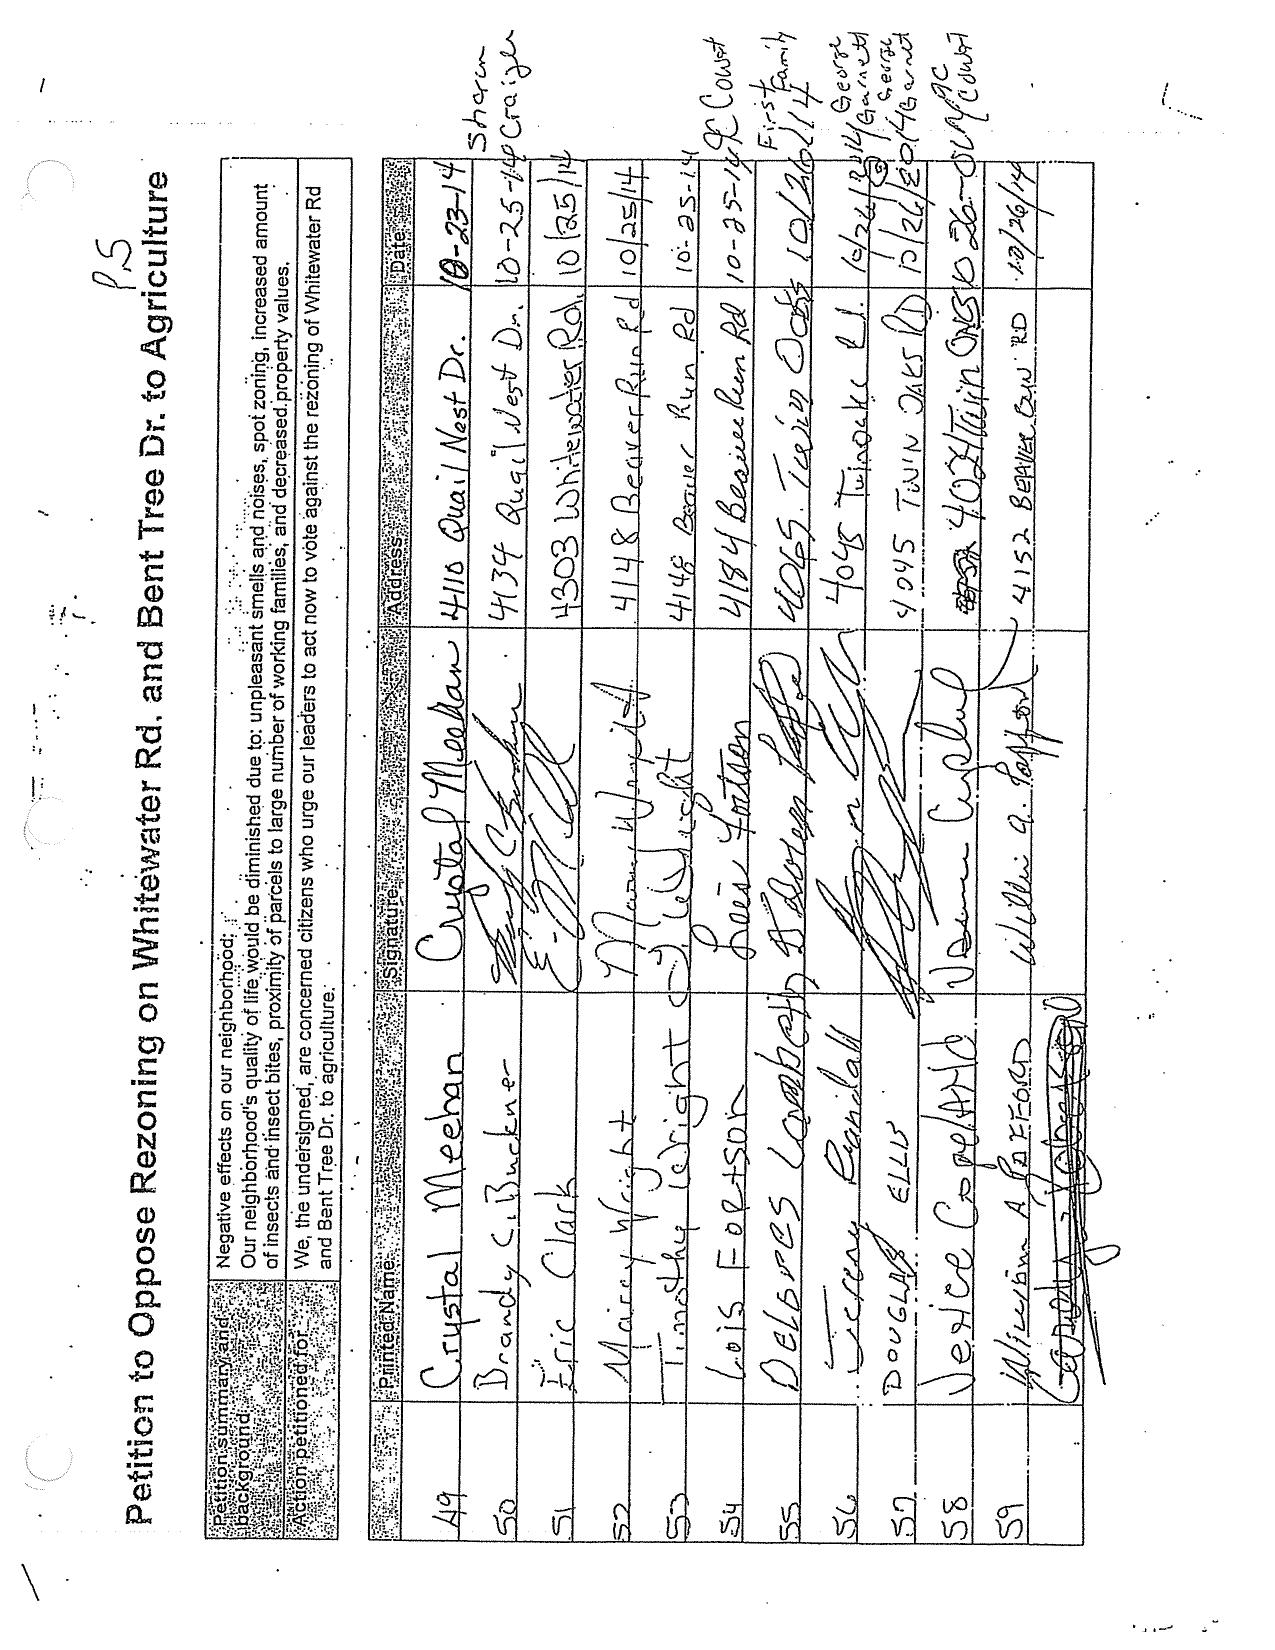 P.5
Petition to Oppose Rezoning on Whitewater Rd. and Bent Tree Dr. to Agriculture
Petition summary and background
Negative effects on our neighborhood:
Our neighborhood's quality of life would be diminished due to: unpleasant smells and noises, spot zoning, increased amount
of insects and insect bites, proximity of parcels to large number of working families, and decreased property values.
Action petitioned for
We, the undersigned, are concerned citizens who urge our leaders to act now to vote against the rezoning of Whitewater Rd
and Bent Tree Dr. to agriculture.
Printed Name Signature Address Date
49 Crystal Meehan Crystal Meehan 4110 Quail Nest Dr. 10-23-14
50 Brandy C. Buckner 4134 Quail Nest Dr. 10-25-14 Sharon Craigle
51 Eric Clark 4303 Whitewater Rd. 10/25/14
52 Mairey Wright 4148 Beaver Run Rd 10/25/14
53 Timothy Wright 4148 Beaver Run Rd 10-25-14
54 Lois Fortson Lois Fortson 4184 Beaver Run Rd 10-25-14 Court
55 Delores Lambeth 4065 Twin Oaks 10/26/14 First Family
56 Jeremy Randall 4045 Twinoaks Rd. 10/26/2014 George Garnett
57 DOUGLAS ELLIS 4045 TWIN OAKS RD 10/26/2014 George Garnet
58 Verice Copeland 4024 Twin Oaks 10 26 Court
59 William A Pafford Willie A. Pafford 4152 BEAVER RUN RD 10/26/14